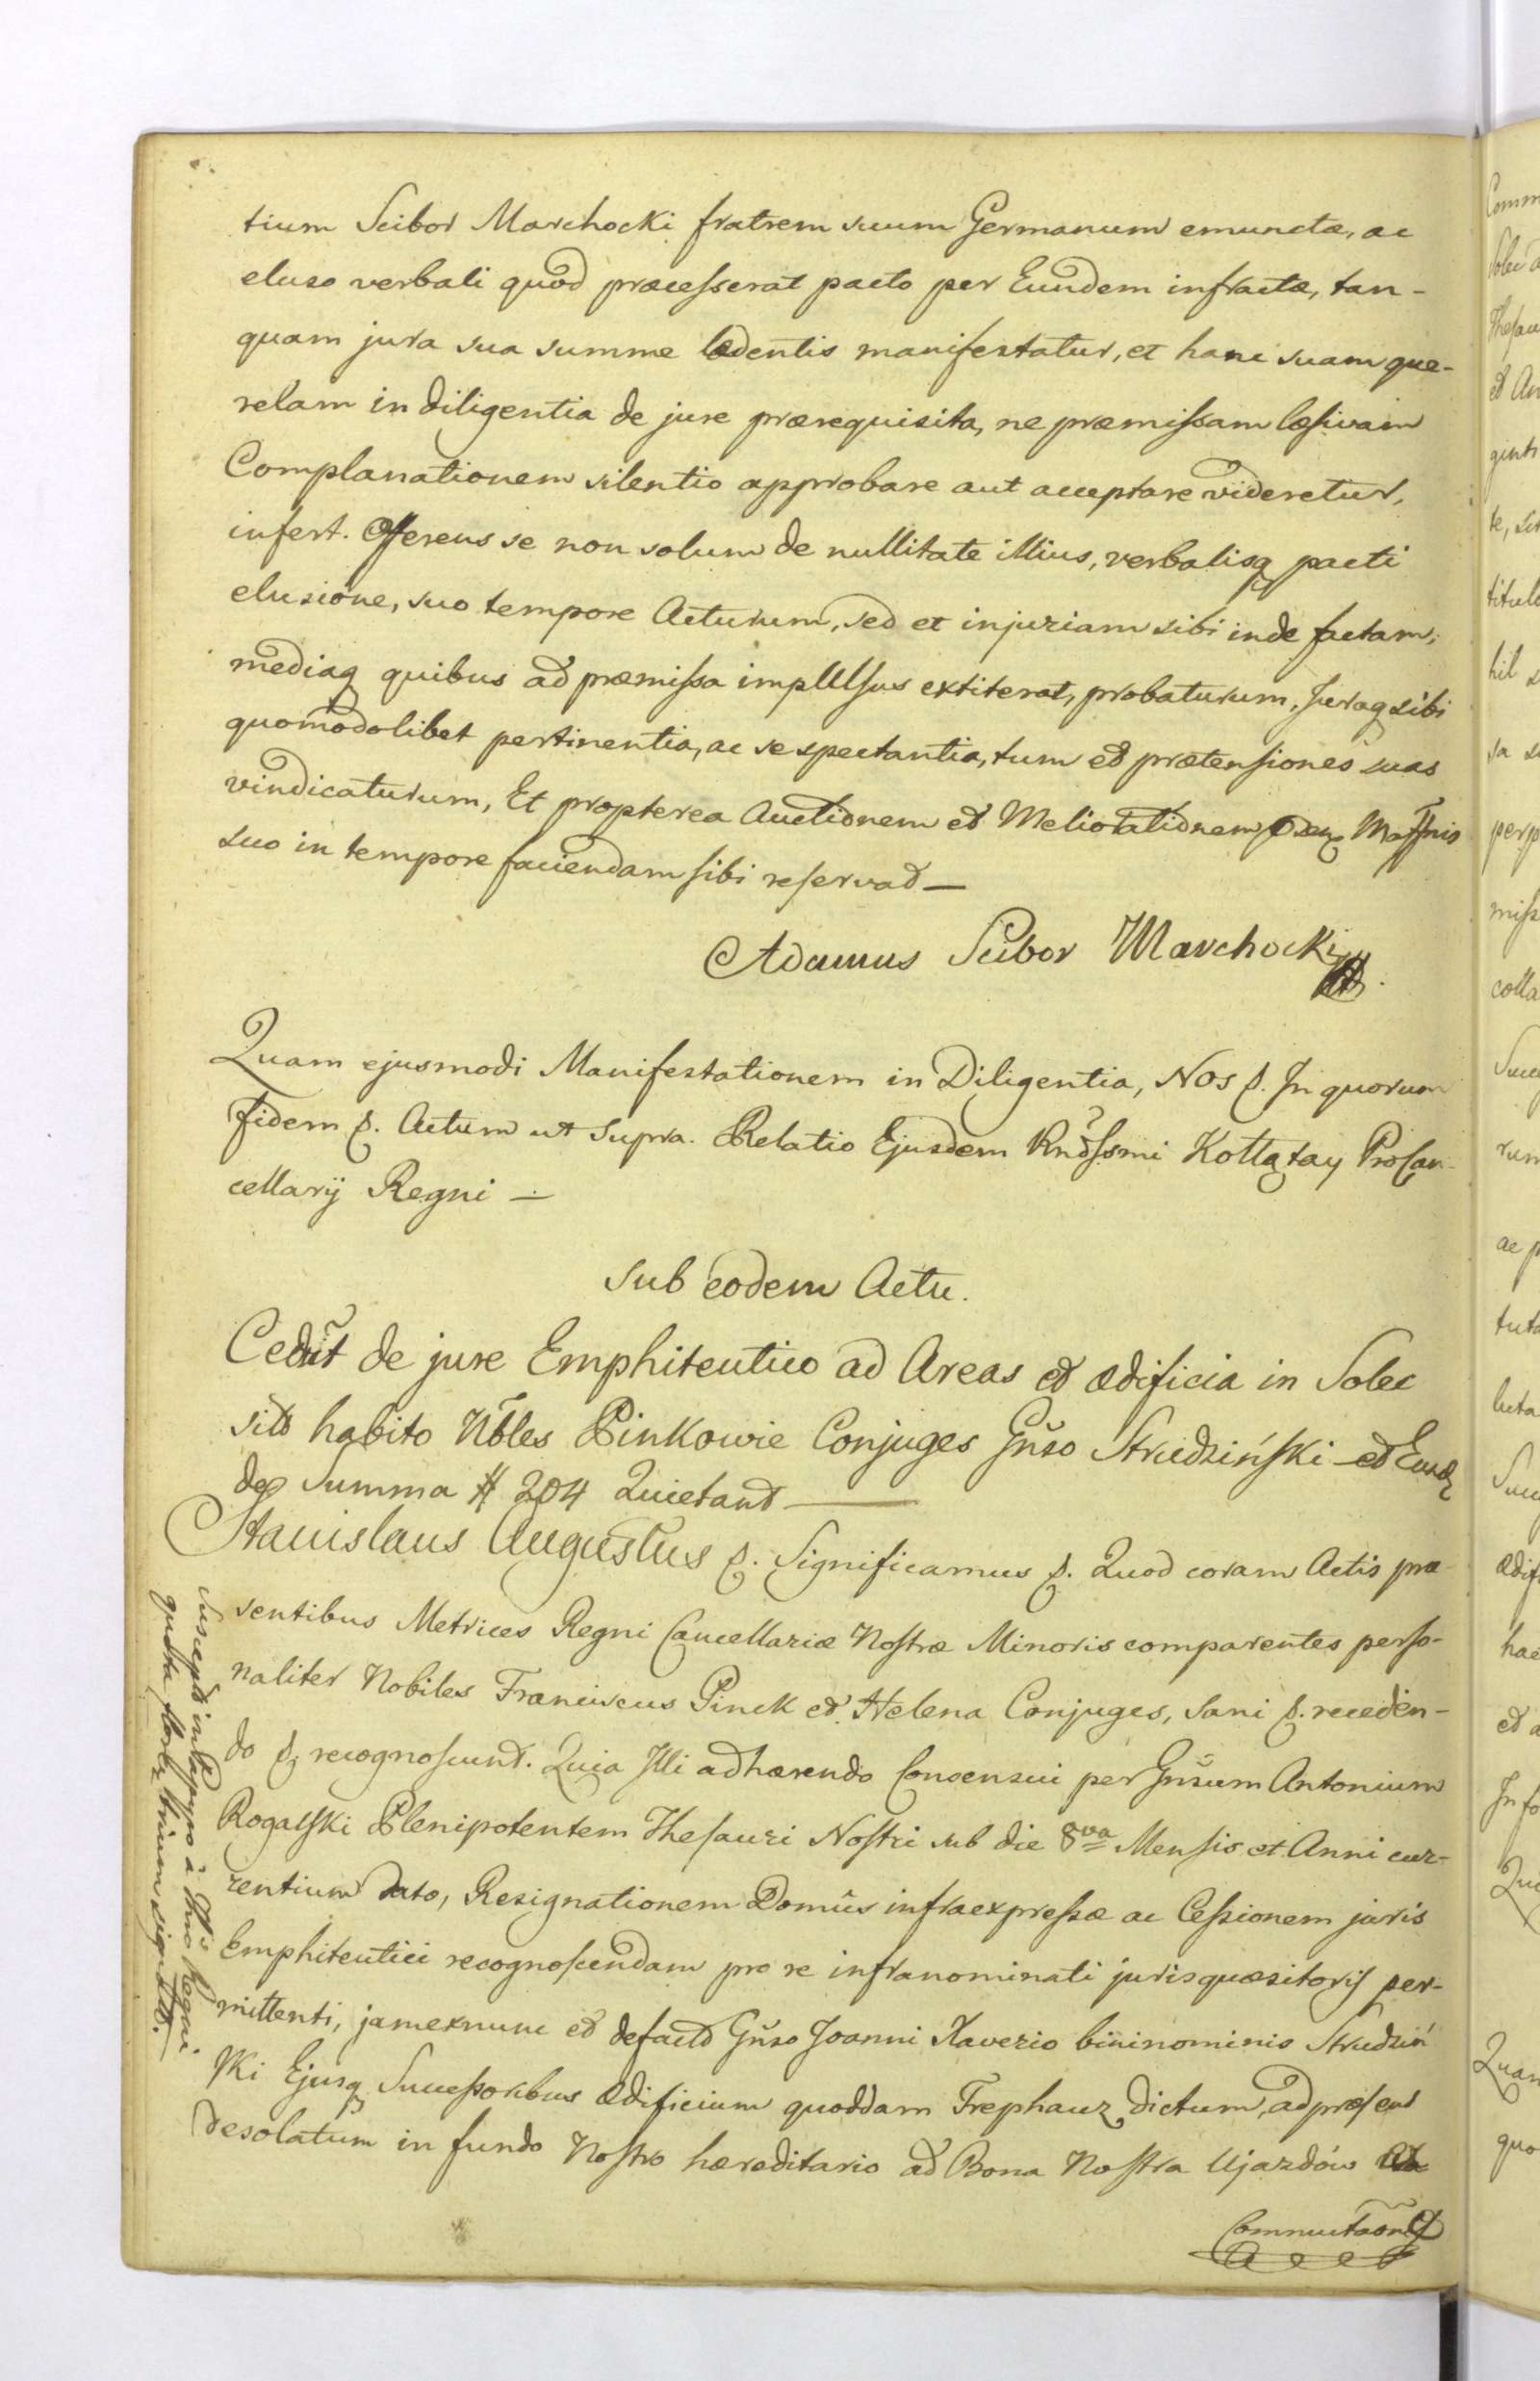 tium Scibor Marchocki fratrem suum Germanum emunctæ, ac
eluso verbali quod præcesserat pacto per Eundem infractæ, tan-
quam jura sua summe lædentis manifestatur, et hanc suam que-
relam in diligentia de jure prærequisita, ne præmissam læsivam
Complanationem silentio approbare aut acceptare videretur,
infert. Offerens se non solum de nullitate illius, verbalisq pacti
elusione, suo tempore Acturum, sed et injuriam sibi inde factam,
mediaq quibus ad præmissa impulsus extiterat, probaturum, Juraq sibi
quomodolibet pertinentia, ac se spectantia, tum et prætensiones suas
vindicaturum, Et propterea Auctionem et Meliorationem
suo in tempore faciendam sibi reservat —
Adamus Scibor Marchocki
Quam ejusmodi Manifestationem in Diligentia, Nos p. In quorum
fidem p. Actum ut supra. Relatio Ejusdem Rndssmi Kołłątay ProCan-
cellarij Regni —
Sub eodem Actu.
Cedunt de jure Emphiteutico ad Areas et ædificia in Solec
sito habito Nbles Pinkowie Conjuges Gnso Strudziński et Eund
de Summa # 204 Quietant —
Stanislaus Augustus p. Significamus p. Quod coram Actis præ-
sentibus Metrices Regni Cancellariæ Nostræ Minoris comparentes perso-
naliter Nobiles Franciscus Pinck et Helena Conjuges, sani p. receden-
do p. recognoscunt. Quia Illi adhærendo Consensui per Gnsum Antonium
Rogalski Plenipotentem Thesauri Nostri sub die 8va Mensis et Anni cur-
rentium dato, Resignationem Domûs infraexpressæ ac Cessionem juris
Emphiteutici recognoscendam pro re infranominati jurisquæsitoris per-
mittenti, jamexnunc et defacto Gnso Joanni Xaverio binominis Strudziń
ski Ejusq Successoribus ædificium quoddam Trephauz dictum, ad præsens
desolatum in fundo Nostro hæreditario ad Bona Nostra Ujazdów
Suscepta in Papyro à Regni